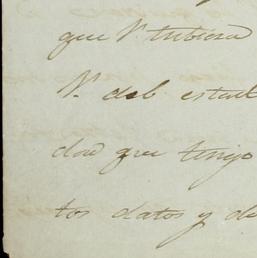 que V. tubiera
V. del estad
dow que tengo
tos datos y de